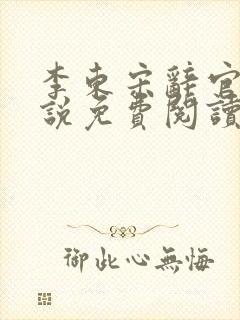 李東宋辭官
說免費閱讀
御此心無悔